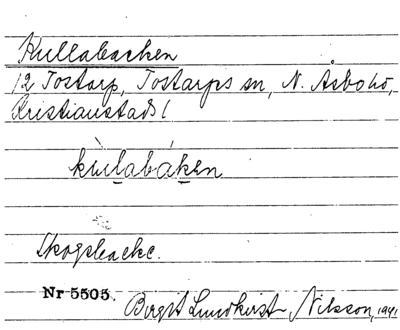 Kullabacken
12 Tostarp, Tostarps sn, N. Åsbo hd,
Kristianstads l
kùlabáken
Skogsbacke.
Nr 5505. Birgit Lundkvist-Nilsson, 1941